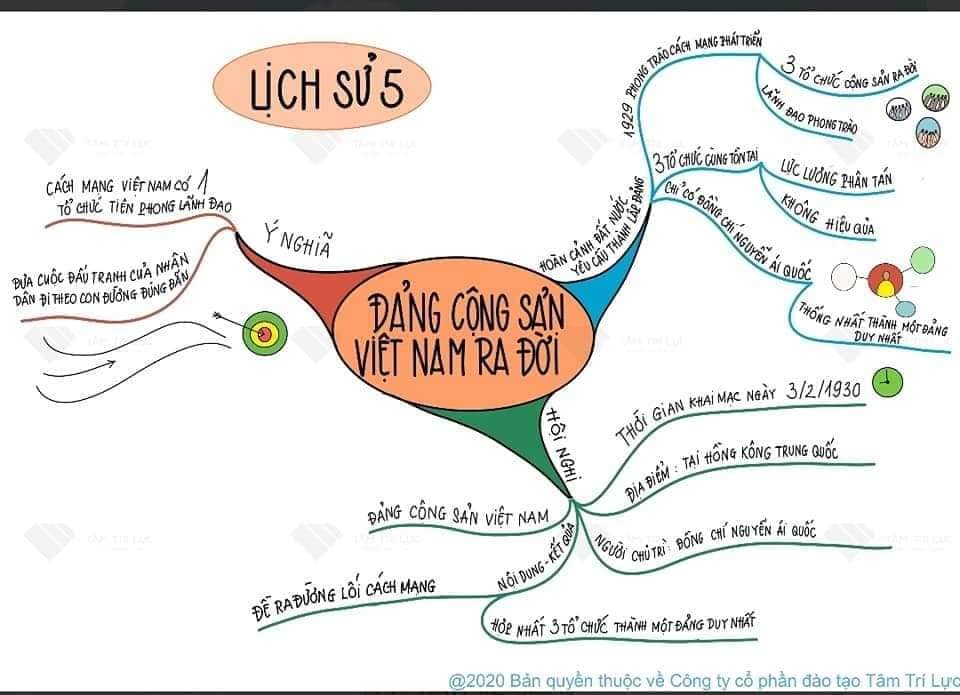 LỊCH SỬ 5
ĐẢNG CỘNG SẢN
VIỆT NAM RA ĐỜI
HOÀN CẢNH ĐẤT NƯỚC
YÊU CẦU THÀNH LẬP ĐẢNG
1929 PHONG TRÀO CÁCH MẠNG PHÁT TRIỂN
3 TỔ CHỨC CỘNG SẢN RA ĐỜI
LÃNH ĐẠO PHONG TRÀO
3 TỔ CHỨC CÙNG TỒN TẠI
LỰC LƯỢNG PHÂN TÁN
KHÔNG HIỆU QUẢ
CHỈ CÓ ĐỒNG CHÍ NGUYỄN ÁI QUỐC
THỐNG NHẤT THÀNH MỘT ĐẢNG
DUY NHẤT
HỘI NGHỊ
THỜI GIAN KHAI MẠC NGÀY 3/2/1930
ĐỊA ĐIỂM: TẠI HỒNG KÔNG TRUNG QUỐC
NGƯỜI CHỦ TRÌ: ĐỒNG CHÍ NGUYỄN ÁI QUỐC
NỘI DUNG-KẾT QUẢ
HỢP NHẤT 3 TỔ CHỨC THÀNH MỘT ĐẢNG DUY NHẤT
ĐỀ RA ĐƯỜNG LỐI CÁCH MẠNG
ĐẢNG CỘNG SẢN VIỆT NAM
Ý NGHĨÃ
CÁCH MẠNG VIỆT NAM CÓ 1
TỔ CHỨC TIÊN PHONG LÃNH ĐẠO
ĐƯA CUỘC ĐẤU TRANH CỦA NHÂN
DÂN ĐI THEO CON ĐƯỜNG ĐÚNG ĐẮN
TÂM TRÍ LỰC
@2020 Bản quyền thuộc về Công ty cổ phần đào tạo Tâm Trí Lực